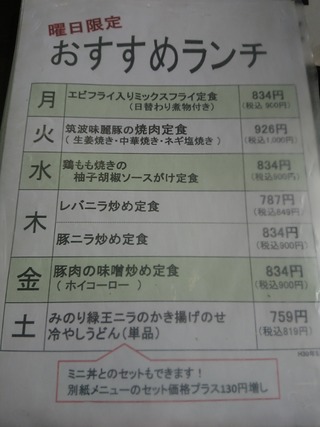 曜日限定
おすすめランチ
月
エビフライ入りミックスフライ定食
(日替わり煮物付き)
834円
(税込 900円)
火
筑波味麗豚の焼肉定食
( 生姜焼き・中華焼き・ネギ塩焼き )
926円
(税込1,000円)
水
鶏もも焼きの
柚子胡椒ソースがけ定食
834円
(税込900円)
木
レバニラ炒め定食
787円
(税込849円)
豚ニラ炒め定食
834円
(税込900円)
金
豚肉の味噌炒め定食
( ホイコーロー )
834円
(税込900円)
土
みのり緑王ニラのかき揚げのせ
冷やしうどん(単品)
759円
(税込819円)
ミニ丼とのセットもできます!
別紙メニューのセット価格プラス130円増し